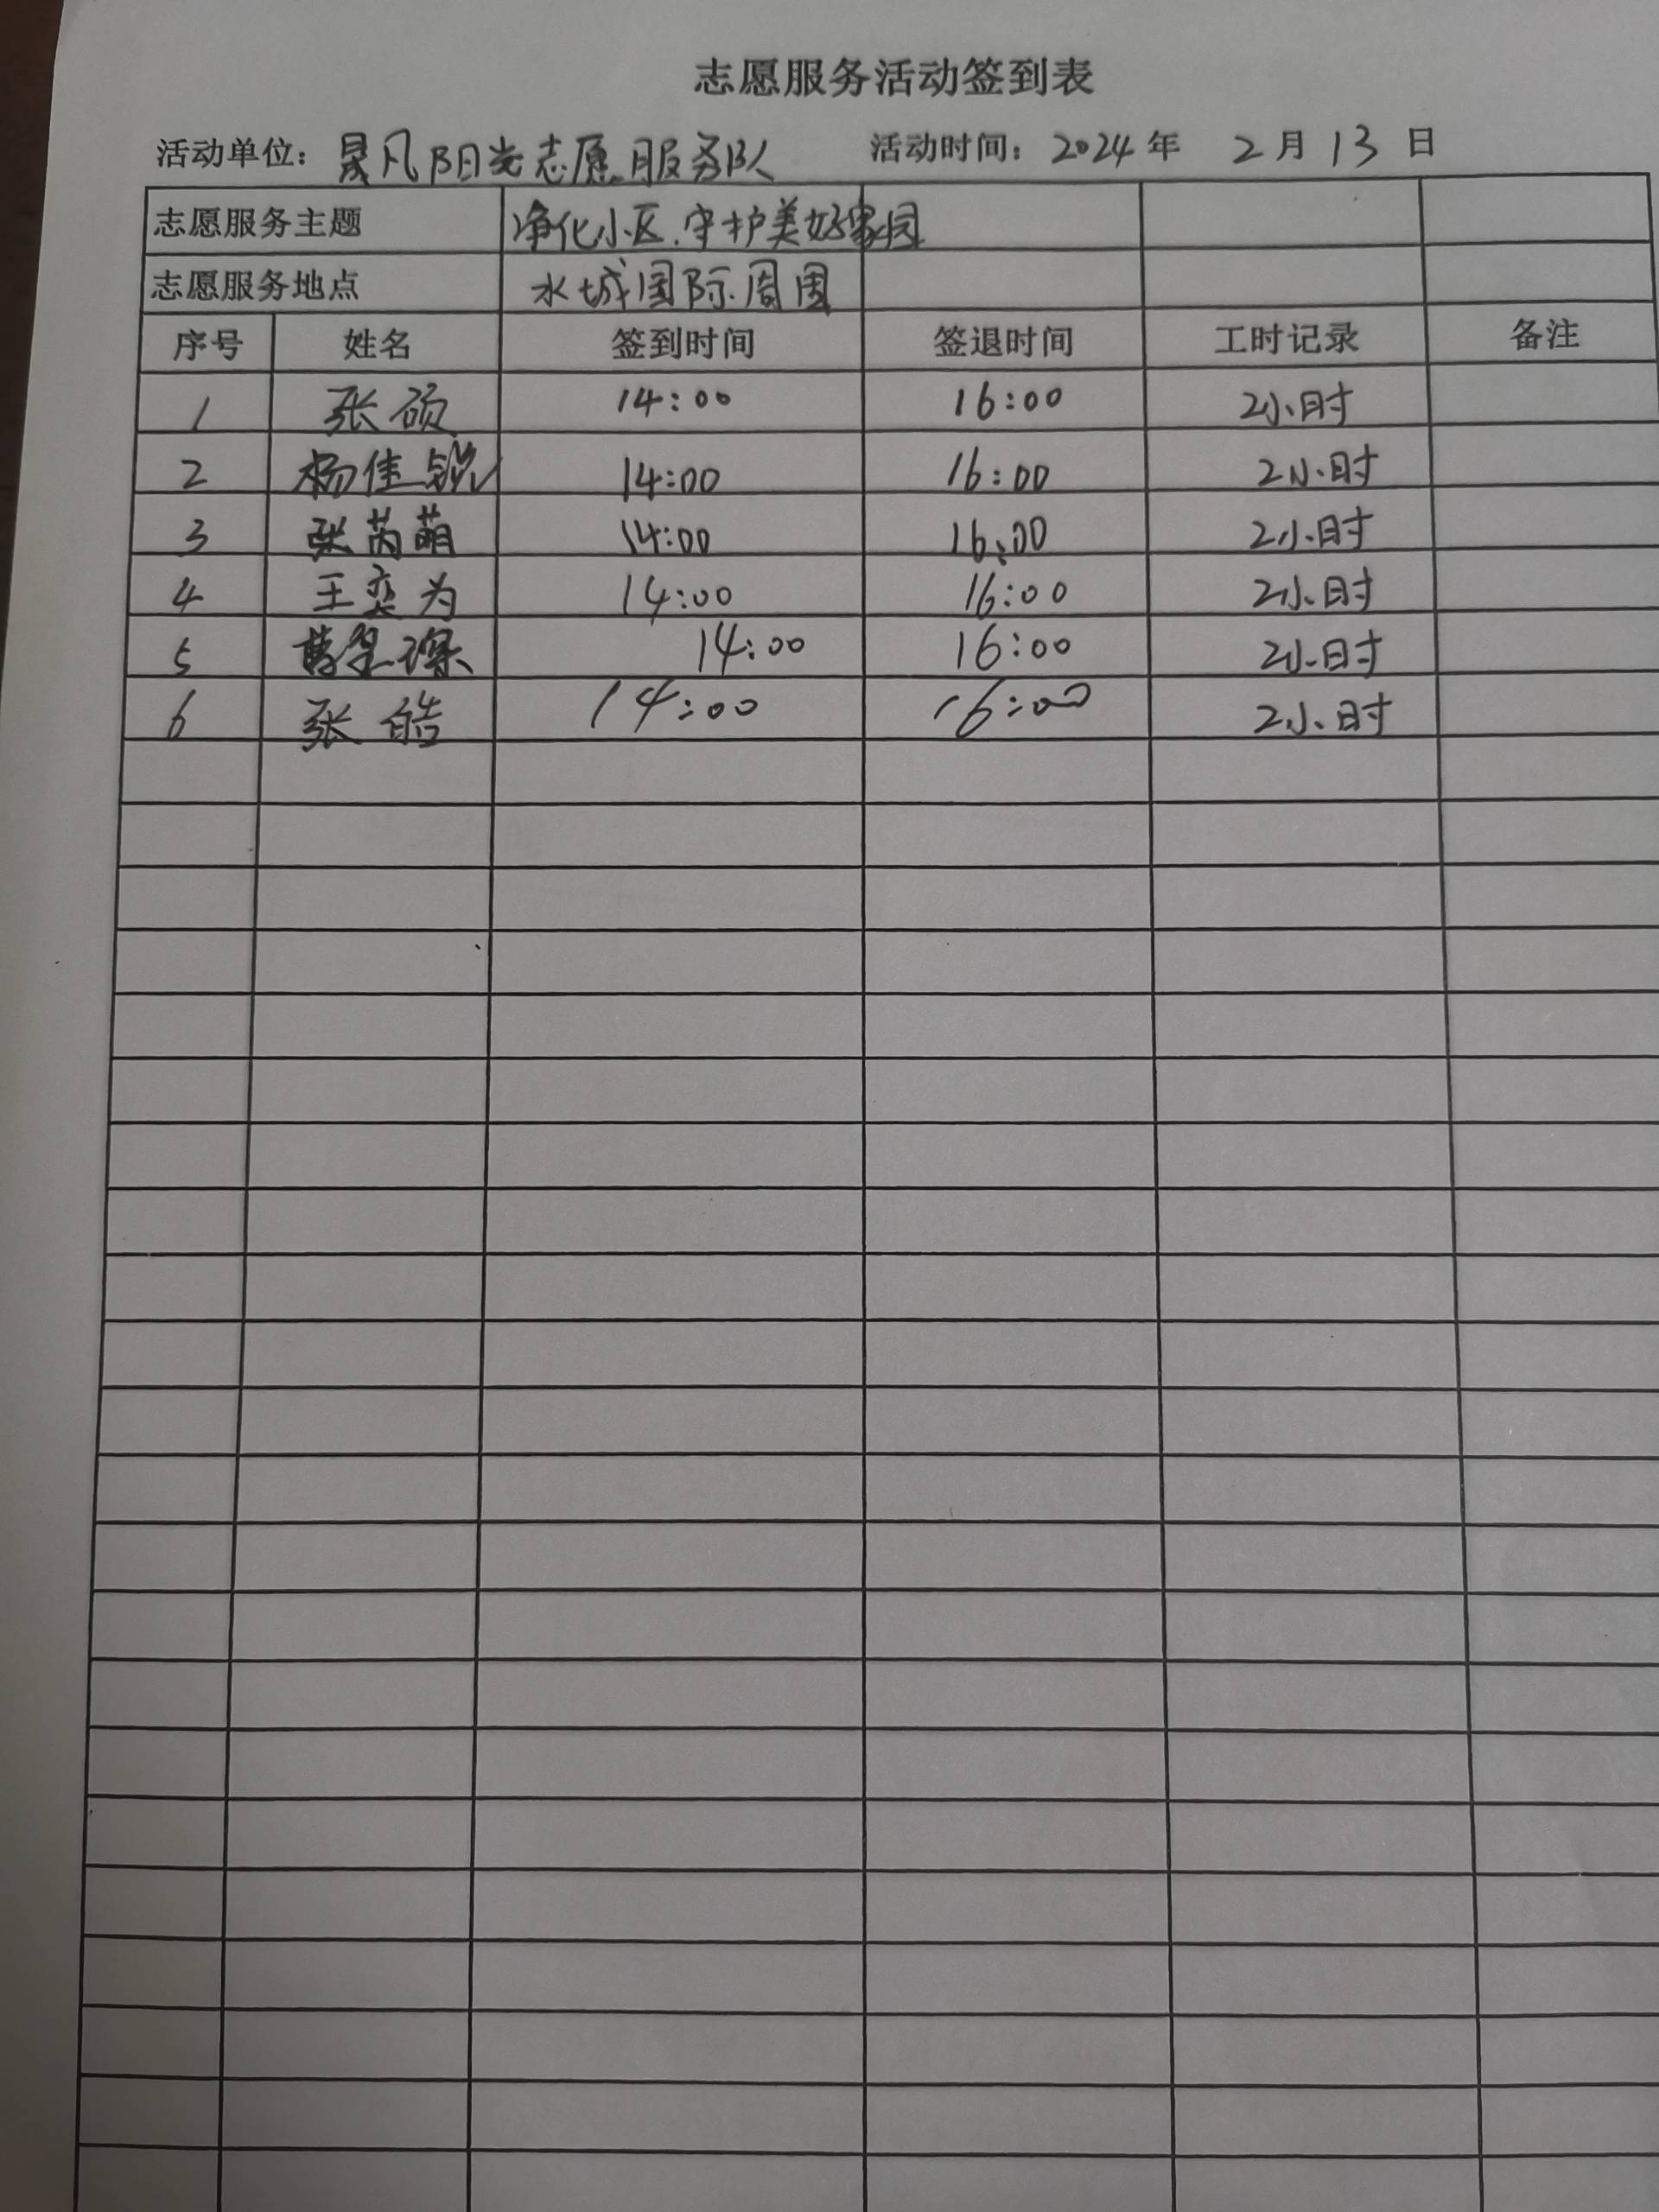 志愿服务活动签到表
活动单位：晟凡阳光志愿服务队 活动时间：2024年 2月13日
志愿服务主题 净化小区.守护美好家园
志愿服务地点 水城国际.周围
序号 姓名 签到时间 签退时间 工时记录 备注
1 张硕 14:00 16:00 2小时
2 杨佳锐 14:00 16:00 2小时
3 张芮萌 14:00 16:00 2小时
4 王奕为 14:00 16:00 2小时
5 14:00 16:00 2小时
6 张皓 14:00 16:00 2小时